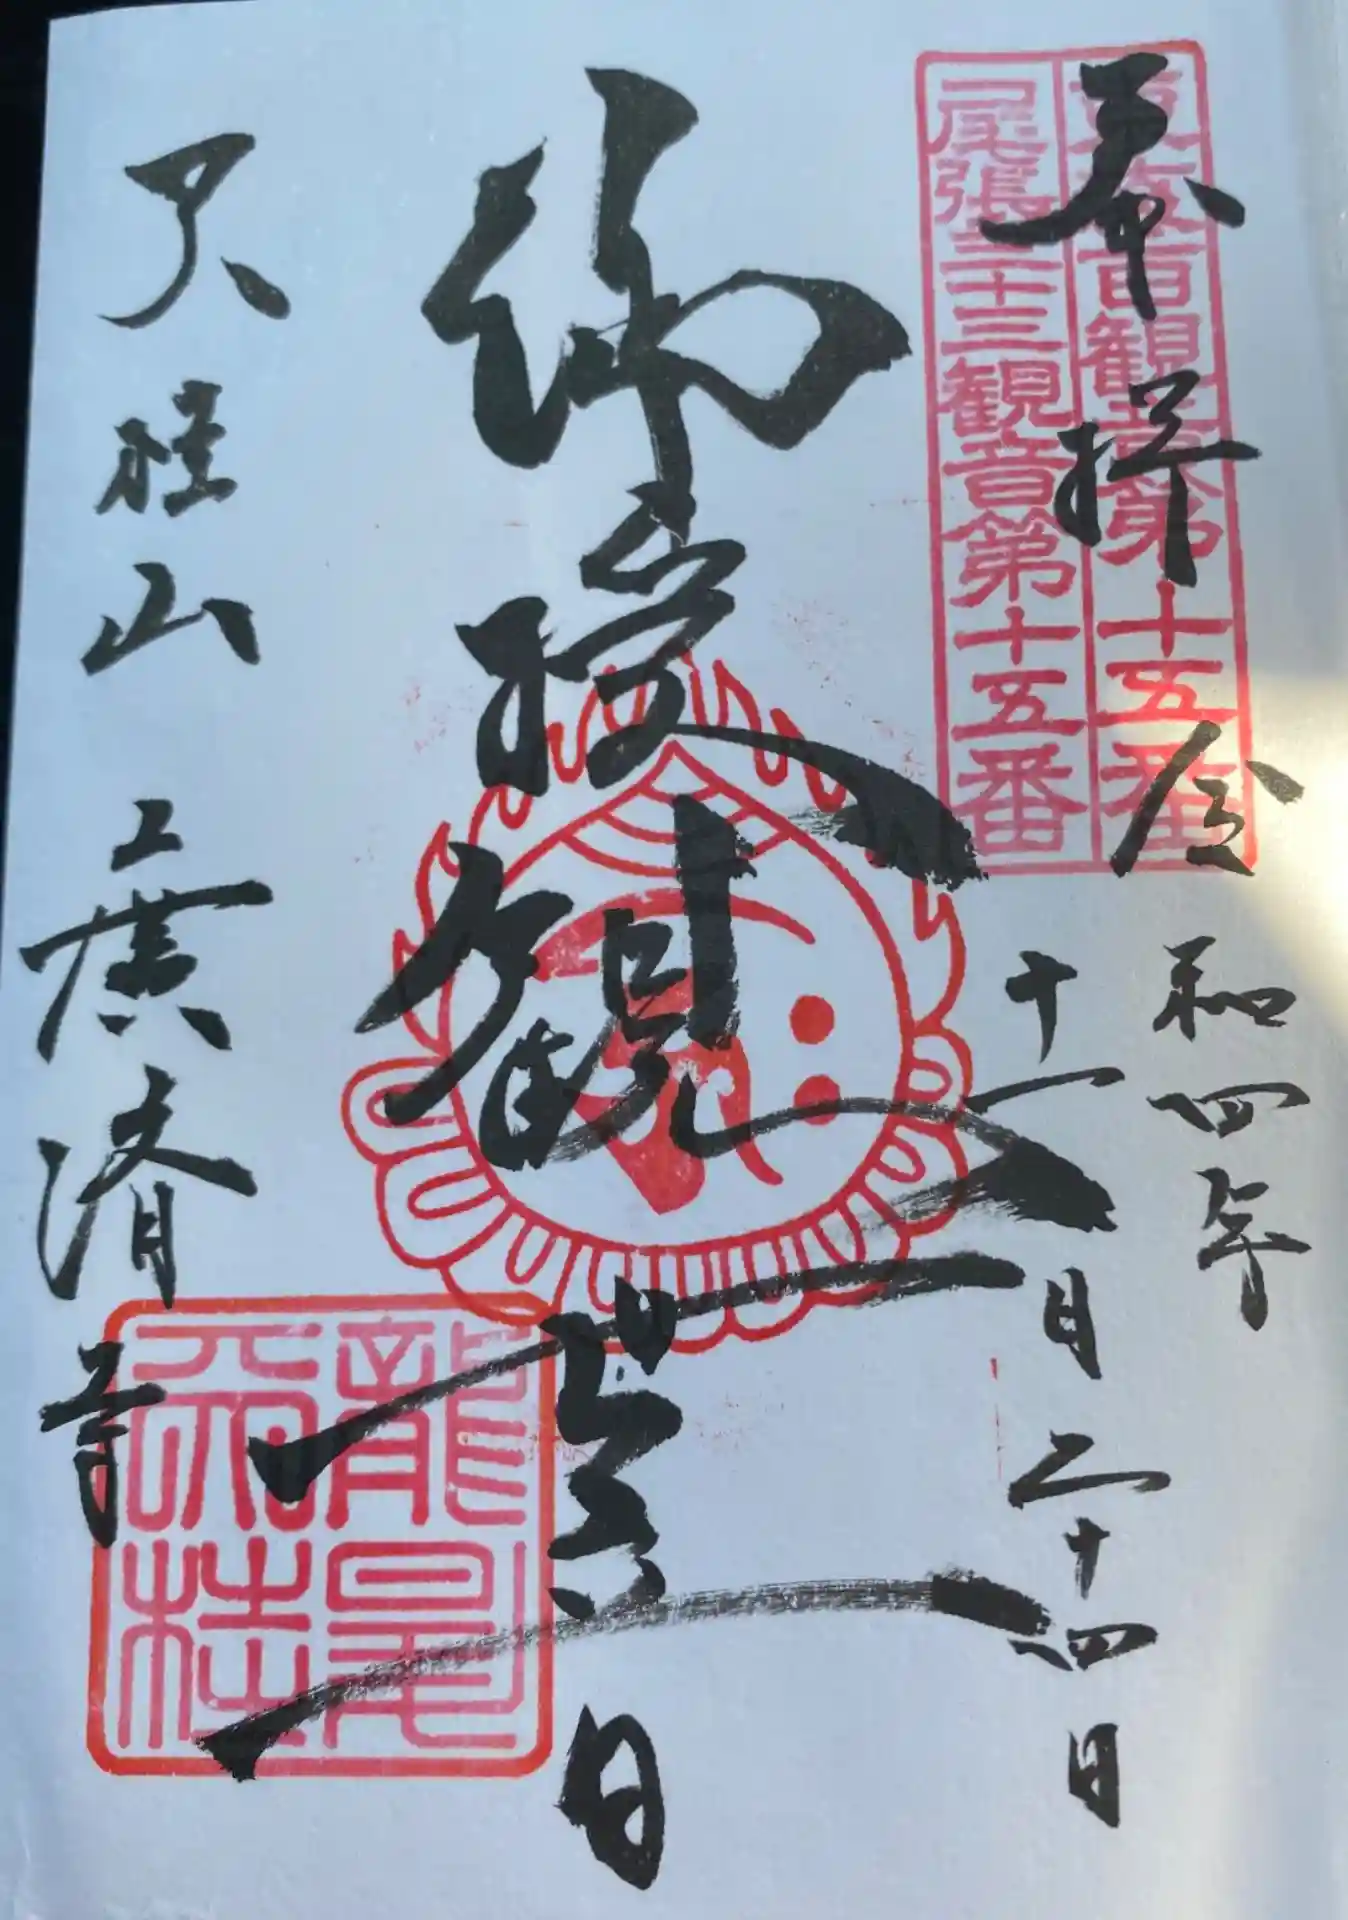 奉拝
東海百観音第十五番
尾張三十三観音第十五番
令和四年
十一月二十四日
観世音
天桂山 廣済寺